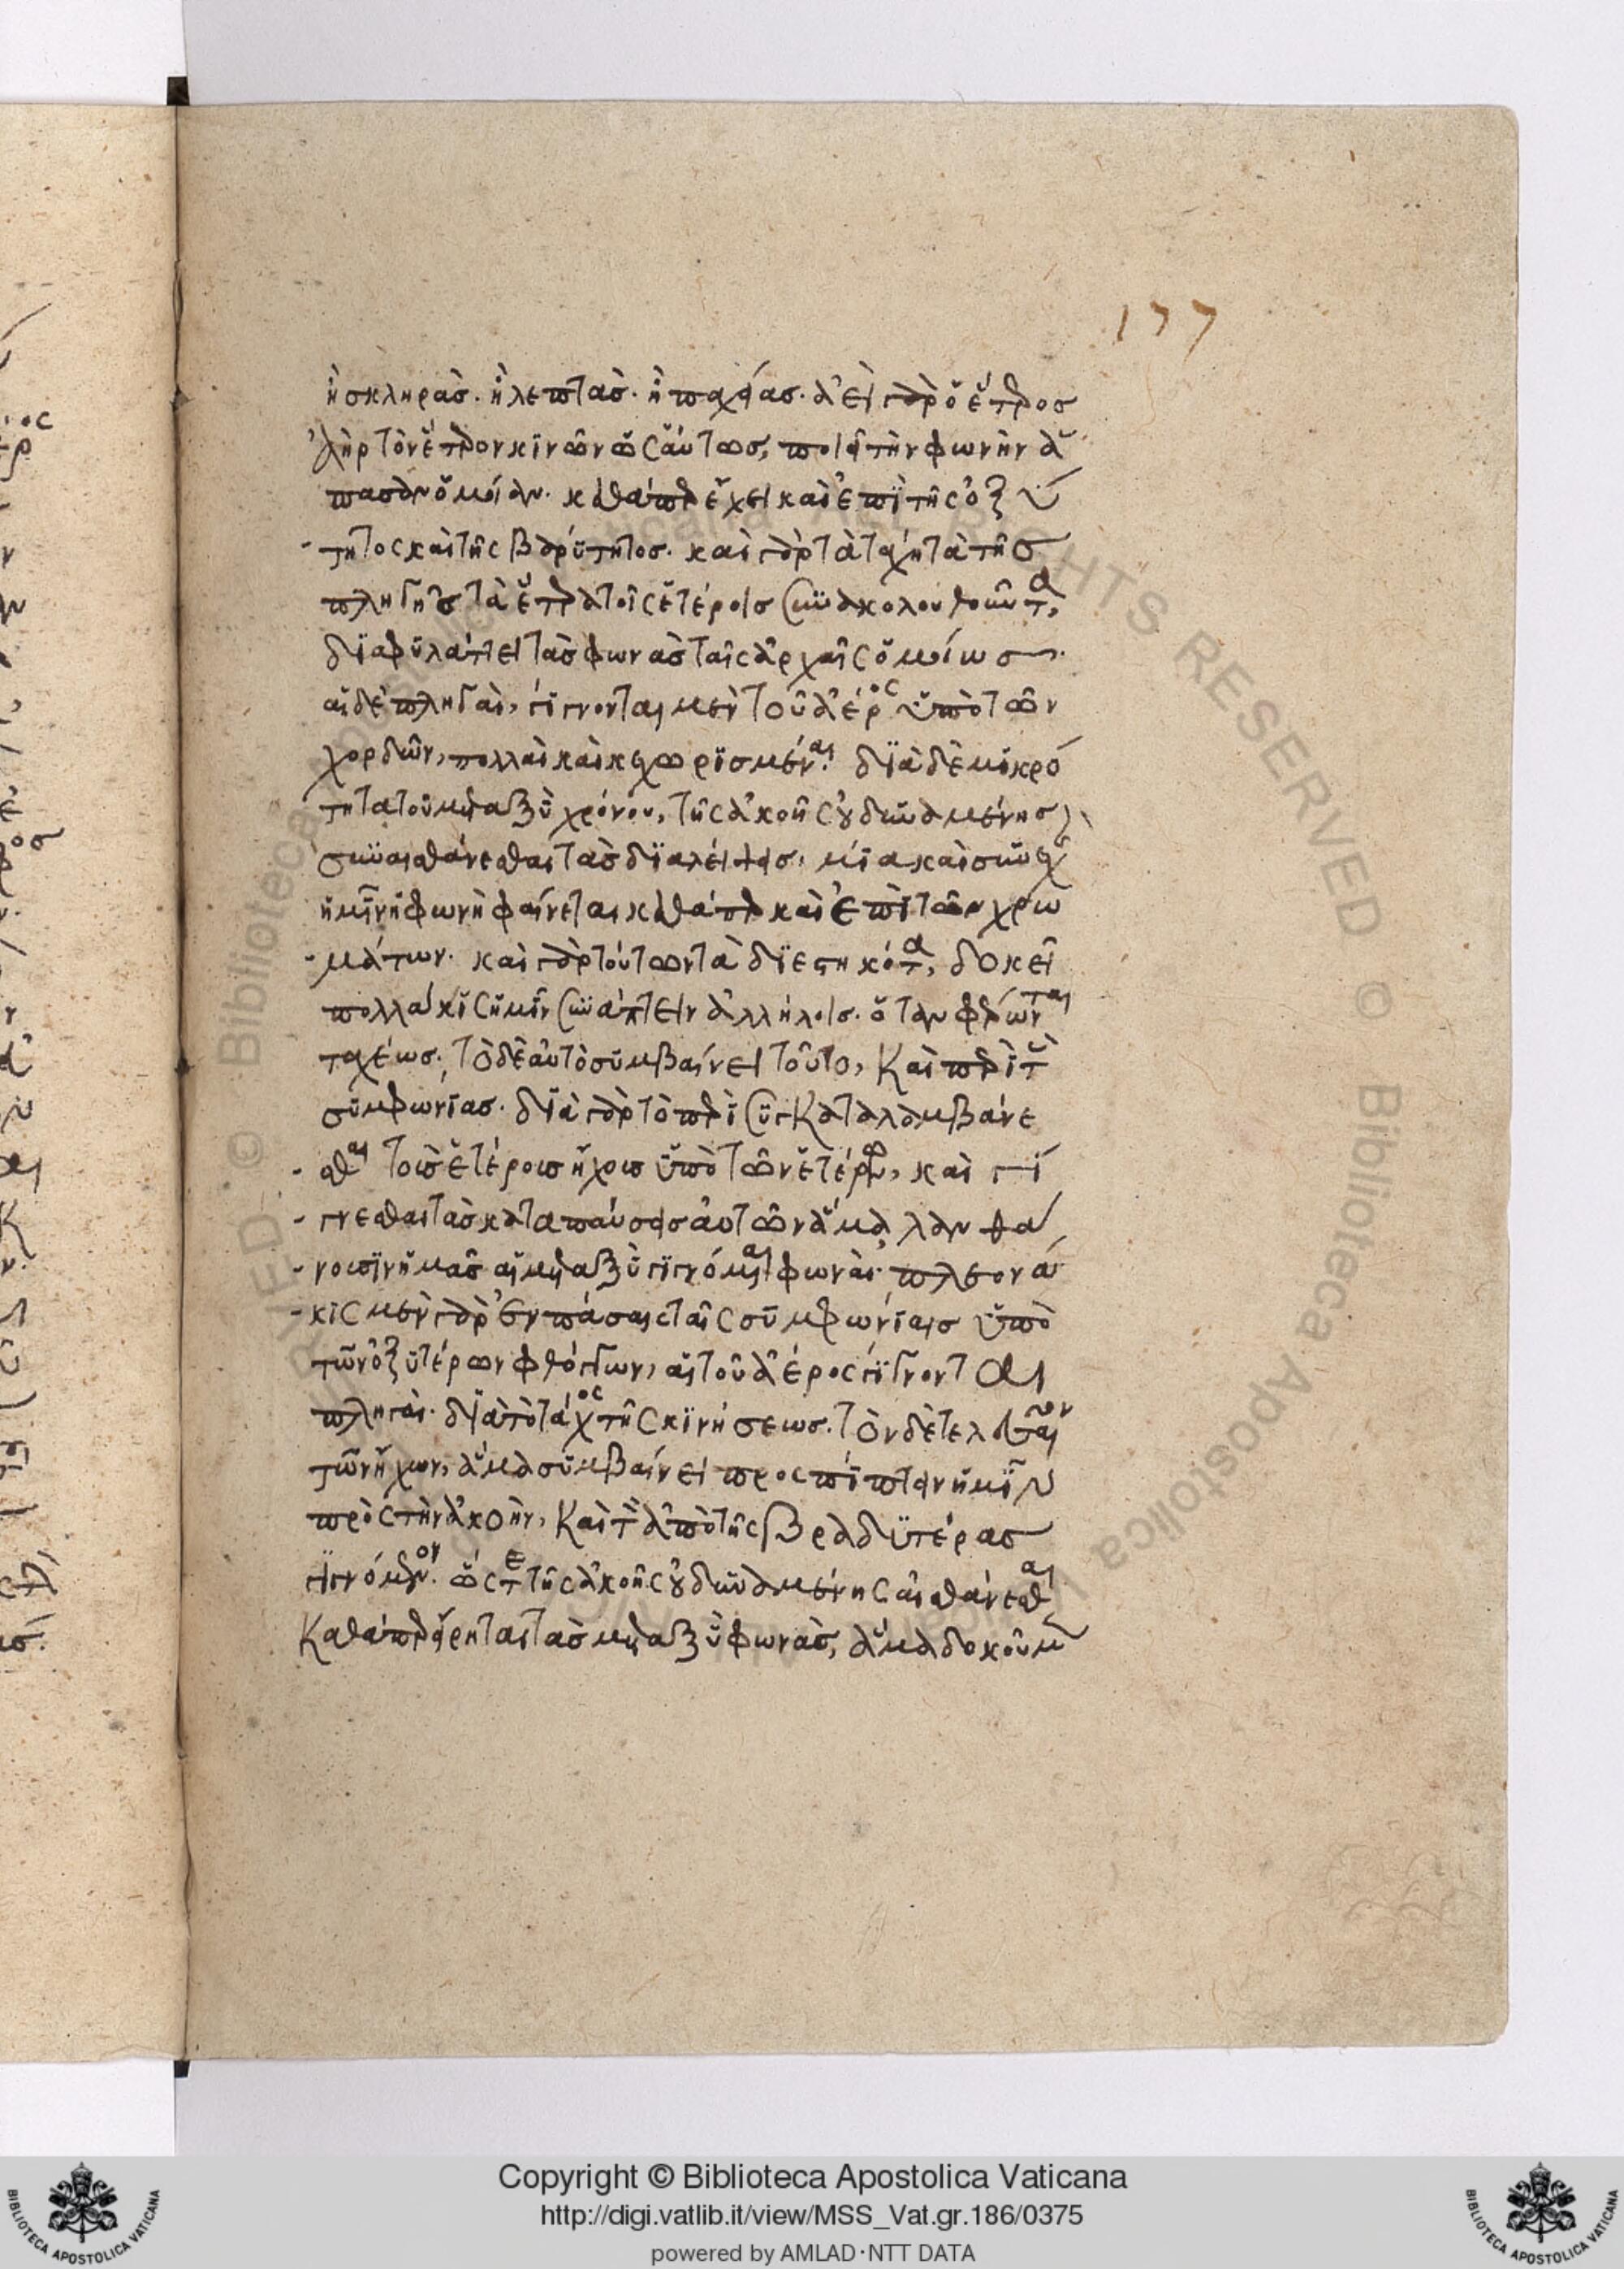 177
ἢ σκληρὰς. ἢ λεπτὰς. ἢ παχείας. ἀεὶ γὰρ ὁ ἕτερος
ἀὴρ τὸν ἕτερον κινῶν ὡσαύτως, ποιεῖ τὴν φωνὴν ἅ
πασαν ὁμοίαν. καθάπερ ἔχει καὶ ἐπὶ τῆς ὀξύ
τητος καὶ τῆς βαρύτητος. καὶ γὰρ τὰ τάχη τὰ τῆς
πληγῆς τὰ ἕτερα τοῖς ἑτέροις συνακολουθοῦντα,
διαφυλάττει τὰς φωνὰς ταῖς ἀρχαῖς ὁμοίως.
αἱ δὲ πληγαὶ, γίγνονται μὲν τοῦ ἀέρος ὑπὸ τῶν
χορδῶν, πολλαὶ καὶ κεχωρισμέναι. διὰ δὲ μικρό
τητα τοῦ μεταξὺ χρόνου, τῆς ἀκοῆς οὐ δυναμένης
συναισθάνεσθαι τὰς διαλείψεις, μία καὶ συνεχὴ
ἡμῖν ἡ φωνὴ φαίνεται καθάπερ καὶ ἐπὶ τῶν χρω
μάτων. καὶ γὰρ τούτων τὰ διεστηκότα, δοκεῖ
πολλάκις ἡμῖν συνάπτειν ἀλλήλοις. ὅταν φέρωνται
ταχέως. τὸ δὲ αὐτὸ συμβαίνει τοῦτο, καὶ περὶ τὰς
συμφωνίας. διὰ γὰρ τὸ περισυγκαταλαμβάνε
σθαι τοὺς ἑτέρους ἤχους ὑπὸ τῶν ἑτέρων, καὶ γί
γνεσθαι τὰς καταπαύσεις αὐτῶν ἅμα, λανθά
νουσιν ἡμᾶς αἱ μεταξὺ γιγνόμεναι φωναὶ. πλεονά
κις μὲν γὰρ ἐν πάσαις ταῖς συμφωνίαις ὑπὸ
τῶν ὀξυτέρων φθόγγων, αἱ τοῦ ἀέρος γίγνονται
πληγαὶ. διὰ τὸ τάχος τῆς κινήσεως. τὸν δὲ τελευταῖον
τῶν ἤχων, ἅμα συμβαίνει προσπίπτειν ἡμῖν
πρὸς τὴν ἀκοὴν, καὶ τὸν ἀπὸ τῆς βραδυτέρας
γιγνόμενον. ὥστε τῆς ἀκοῆς οὐ δυναμένης αἰσθάνεσθαι
καθάπερ εἴρηται τὰς μεταξὺ φωνὰς, ἅμα δοκοῦμεν
Copyright © Biblioteca Apostolica Vaticana
http://digi.vatlib.it/view/MSS_Vat.gr.186/0375
powered by AMLAD·NTT DATA